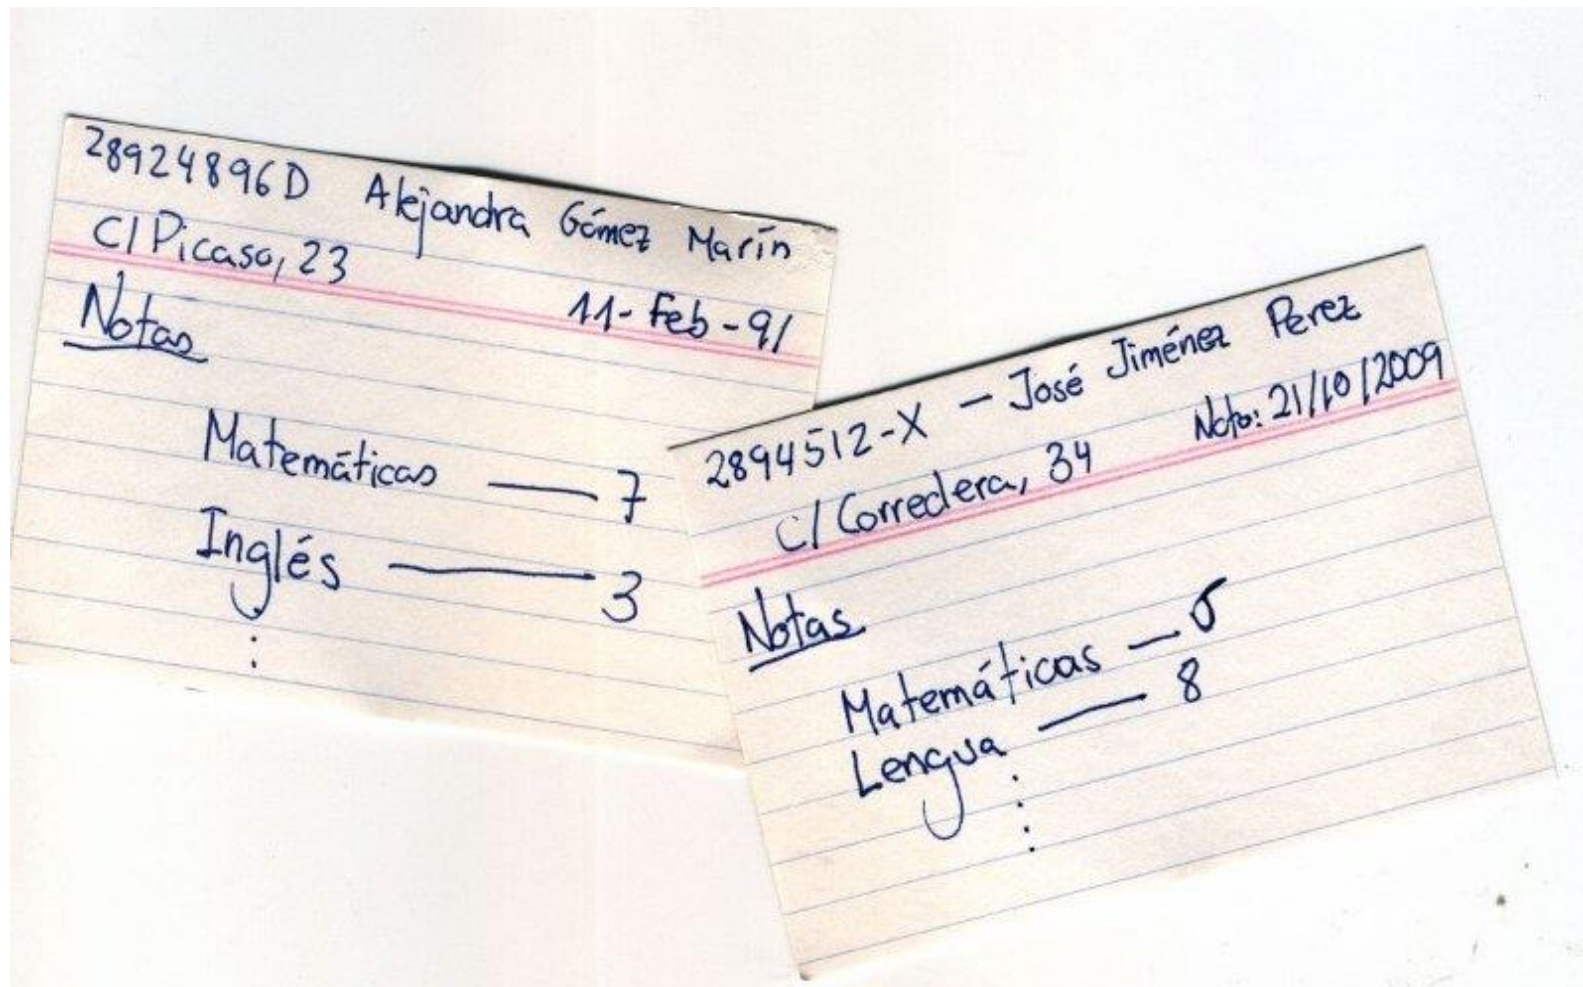 28924896D Alejandra Gómez Marín
C/Picaso, 23
11-Feb-91
Notas
Matemáticas — 7
Inglés — 3
:
2894512-X — José Jiménez Perez
C/Corredera, 34
21/10/2009
Notas
Matemáticas —
Lengua — 8